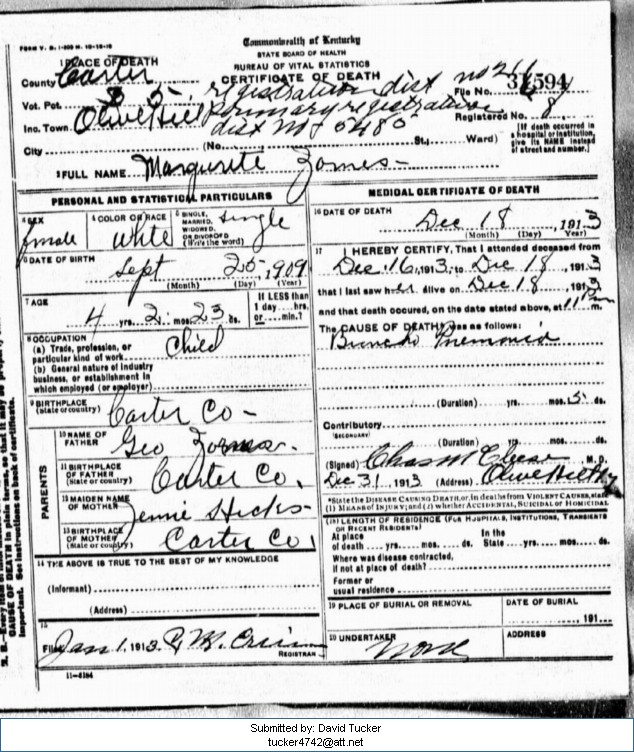 FORM V. S. 1-300 M. 10-19-19
Commonwealth of Kentucky
STATE BOARD OF HEALTH
BUREAU OF VITAL STATISTICS
CERTIFICATE OF DEATH
1 PLACE OF DEATH
County Carter
Vot. Pct. registration dist no
File No. 594
Inc. Town Olive Hill Primary registration
dist no 5480
Registered No. 8
City (No. St.; Ward)
(If death occurred in a hospital or institution, give its NAME instead of street and number.)
2 FULL NAME Margurete Zornes
PERSONAL AND STATISTICAL PARTICULARS
3 SEX female
4 COLOR OR RACE White
5 SINGLE, MARRIED, WIDOWED, OR DIVORCED (Write the word) Single
6 DATE OF BIRTH Sept 25, 1909
(Month) (Day) (Year)
7 AGE 4 yrs. 2 mos. 23 ds.
If LESS than 1 day ... hrs. or ... min.?
8 OCCUPATION
(a) Trade, profession, or particular kind of work Child
(b) General nature of industry business, or establishment in which employed (or employer)
9 BIRTHPLACE (State or country) Carter Co -
PARENTS
10 NAME OF FATHER Geo Zornes
11 BIRTHPLACE OF FATHER (State or country) Carter Co.
12 MAIDEN NAME OF MOTHER Jennie Hicks
13 BIRTHPLACE OF MOTHER (State or country) Carter Co.
14 THE ABOVE IS TRUE TO THE BEST OF MY KNOWLEDGE
(Informant)
(Address)
15
Filed Jan 1, 1913
REGISTRAR
11-3184
MEDICAL CERTIFICATE OF DEATH
16 DATE OF DEATH Dec 18, 1913
(Month) (Day) (Year)
17 I HEREBY CERTIFY, That I attended deceased from
Dec. 16, 1913, to Dec 18, 1913
that I last saw her alive on Dec 18, 1913
and that death occured, on the date stated above, at 11 Pm m.
The CAUSE OF DEATH was as follows:
Bruncho Pnemonia
(Duration) yrs. mos. 5 ds.
Contributory
(SECONDARY)
(Duration) yrs. mos. ds.
(Signed) Chas M M.D.
Dec 31, 1913 (Address) Olive Hill Ky
*State the DISEASE CAUSING DEATH, or, in deaths from VIOLENT CAUSES, state
(1) MEANS OF INJURY; and (2) whether ACCIDENTAL, SUICIDAL or HOMICIDAL
18 LENGTH OF RESIDENCE (FOR HOSPITALS, INSTITUTIONS, TRANSIENTS OR RECENT RESIDENTS)
At place of death yrs. mos. ds. In the State yrs. mos. ds.
Where was disease contracted, if not at place of death?
Former or usual residence
19 PLACE OF BURIAL OR REMOVAL
DATE OF BURIAL
191
20 UNDERTAKER None
ADDRESS
Submitted by: David Tucker
tucker4742@att.net